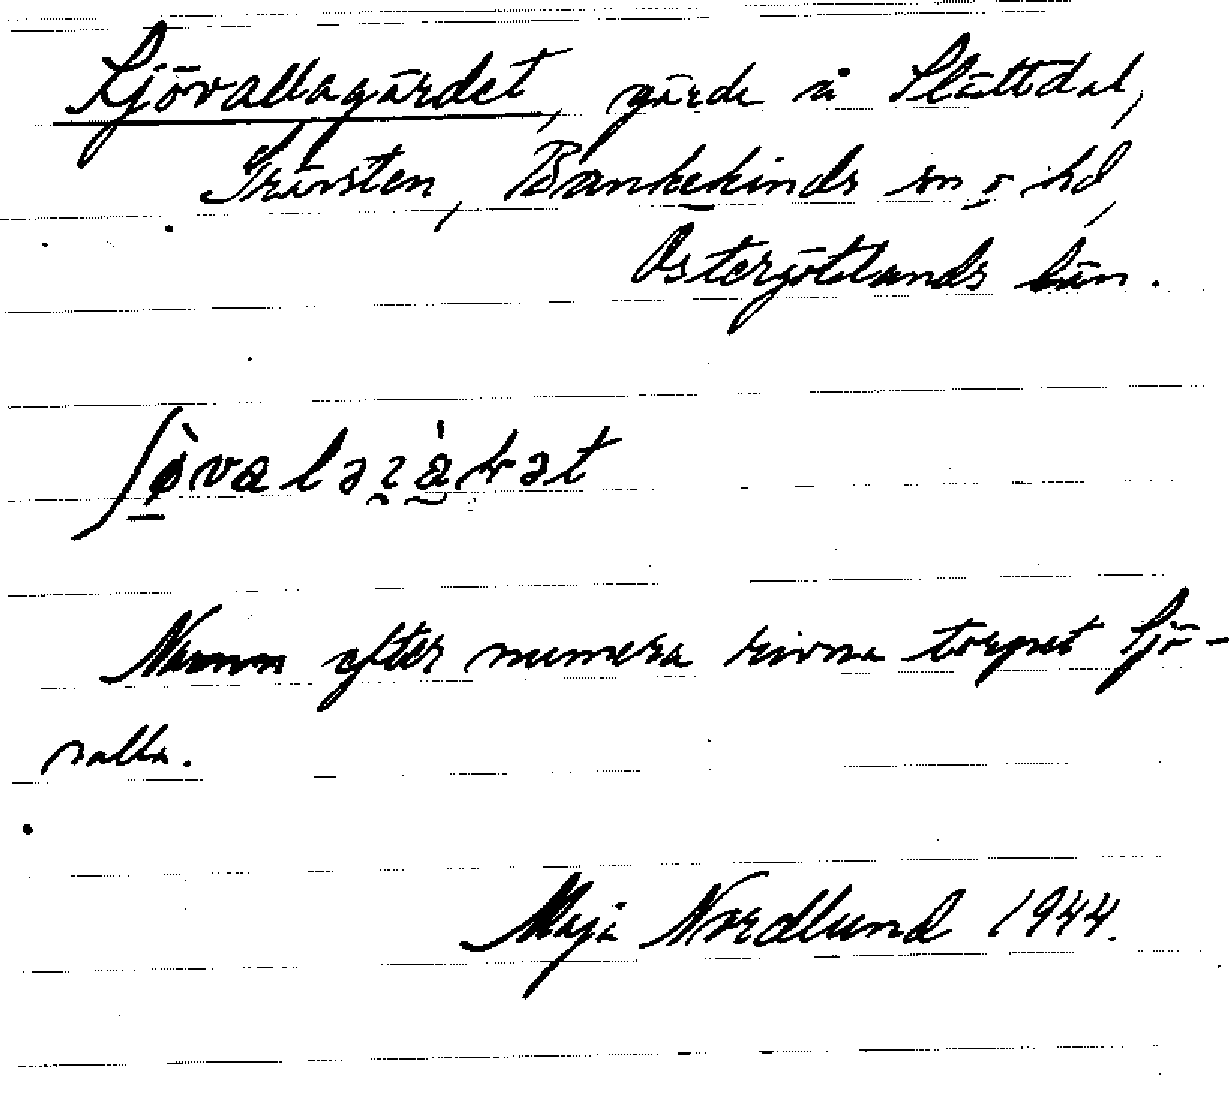 Sjövallagärdet, gärde å Slättdal,
Grävsten, Bankekinds sn o hd,
Östergötlands län.
ʃø̀valaɀàʈət
Namn efter numera rivna torpet Sjö-
valla.
Maja Nordlund 1944.